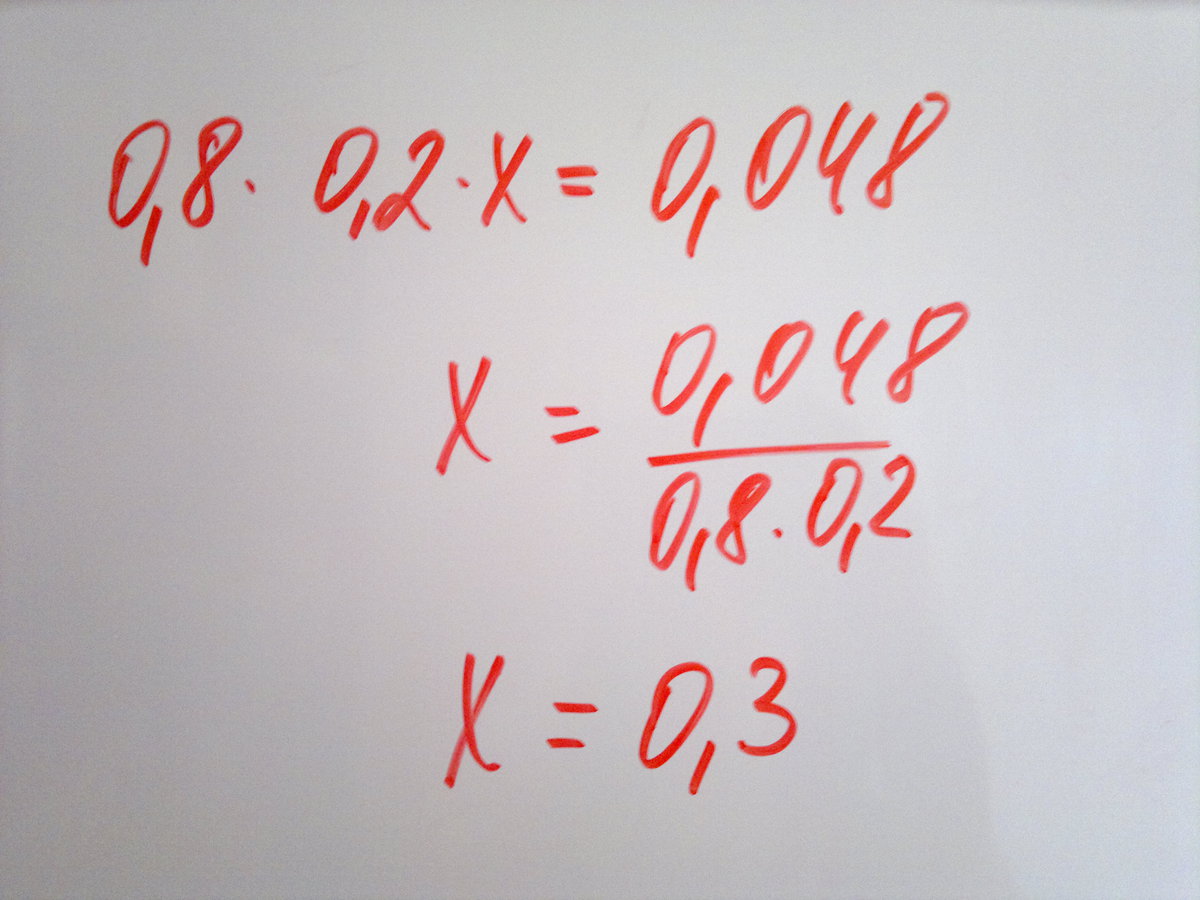 0,8 · 0,2 · x = 0,048
x = 0,048 / 0,8 · 0,2
x = 0,3